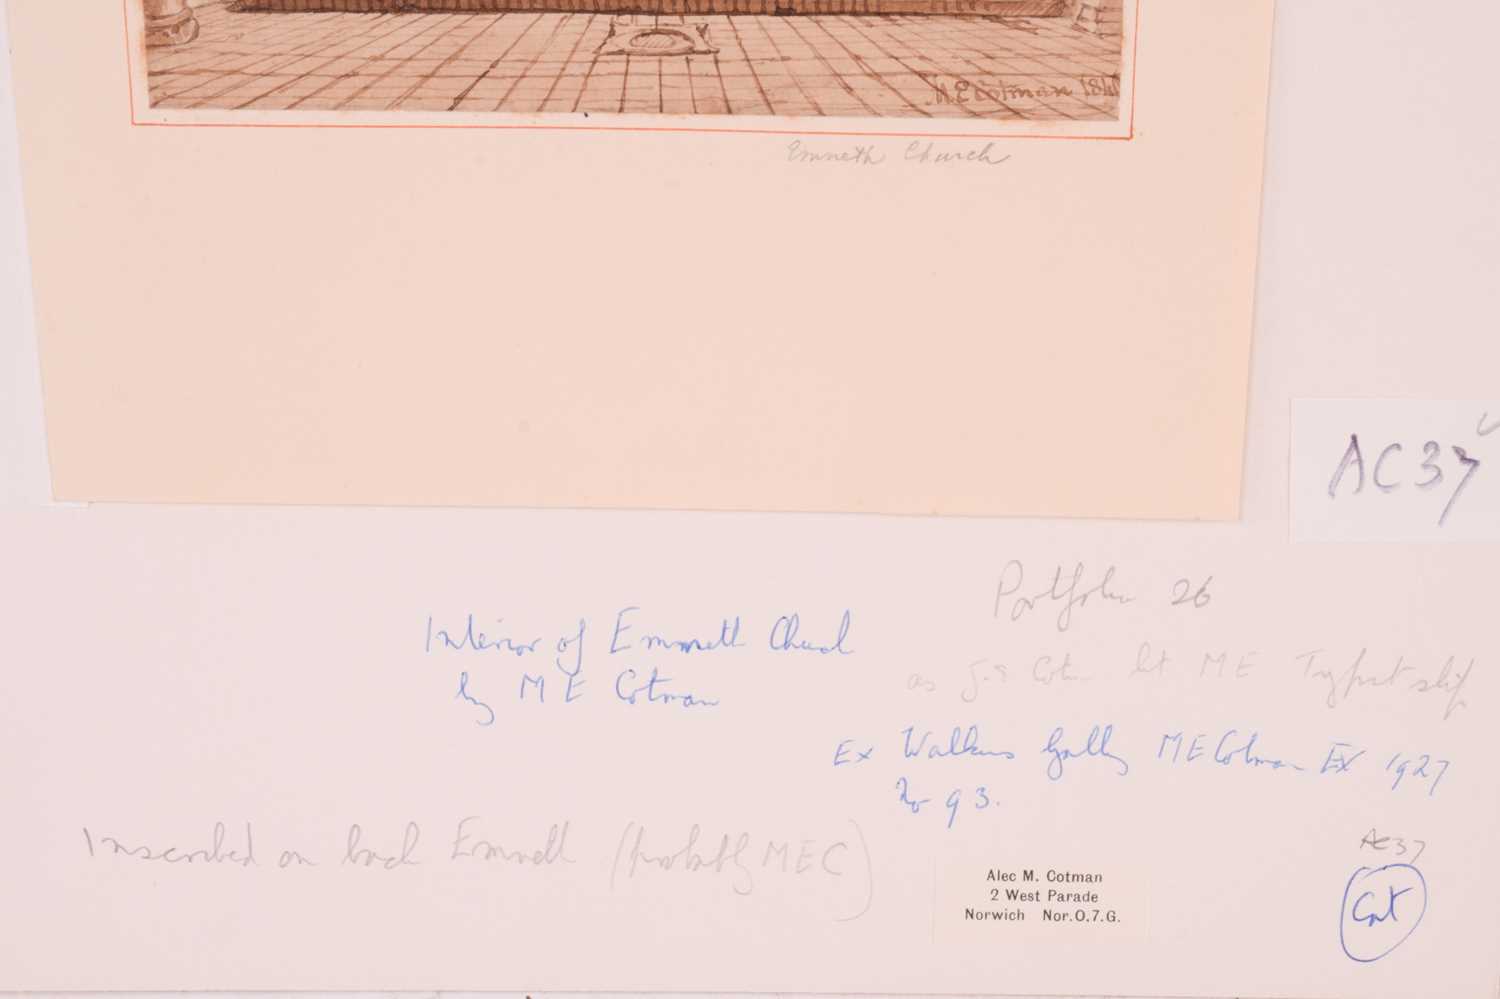 M.E. Cotman 1841
Emneth Church
AC37
Portfolio 26
Interior of Emneth Church
by M E Cotman
as J.S Cotm but ME Typist slip
Ex Walkers Gallery M E Cotman Ex 1927
No 93.
Inscribed on back Emneth (probably MEC)
AC37
Cat
Alec M. Cotman
2 West Parade
Norwich Nor.O.7.G.